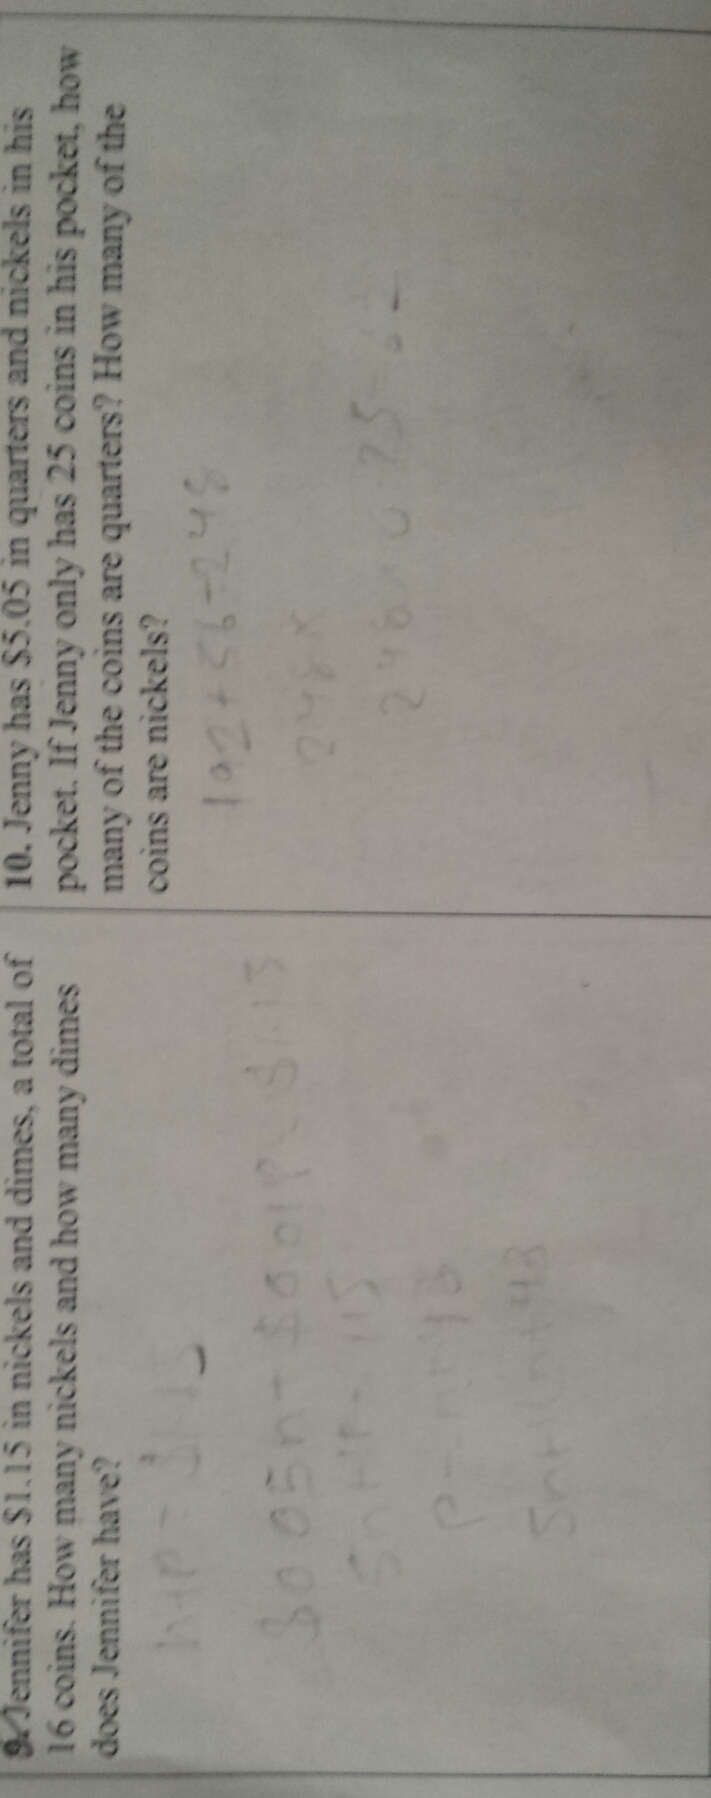 9. Jennifer has $1.15 in nickels and dimes, a total of
16 coins. How many nickels and how many dimes
does Jennifer have?
n+p = $1.15
$0.05n + $0.01p = $1.15
5n + 1p = 115
5n+
10. Jenny has $5.05 in quarters and nickels in his
pocket. If Jenny only has 25 coins in his pocket, how
many of the coins are quarters? How many of the
coins are nickels?
192+56=248
248 x
25